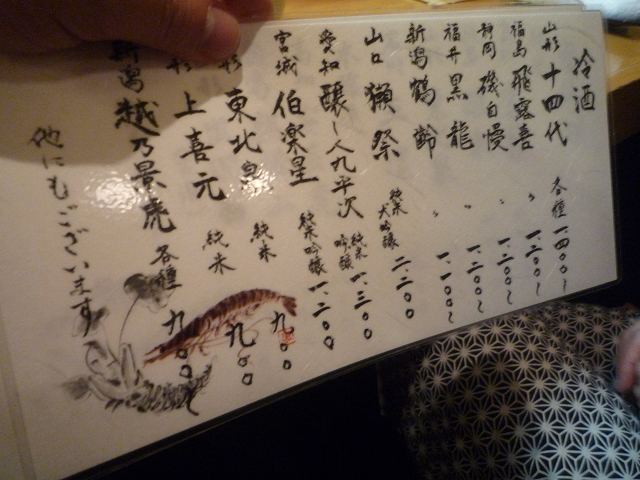 冷酒
山形 十四代 各種 一.四〇〇〜
福島 飛露喜 〃 一.二〇〇〜
静岡 磯自慢 〃 一.二〇〇〜
福井 黒龍 〃 一.一〇〇〜
新潟 鶴齢 〃 一.一〇〇〜
山口 獺祭 純米大吟醸 二.二〇〇
愛知 醸し人九平次 純米吟醸 一.三〇〇
宮城 伯楽星 純米吟醸 一.二〇〇
形 東北泉 純米 九〇〇
形 上喜元 純米 九〇〇
新潟 越乃景虎 各種 九〇〇〜
他にもございます